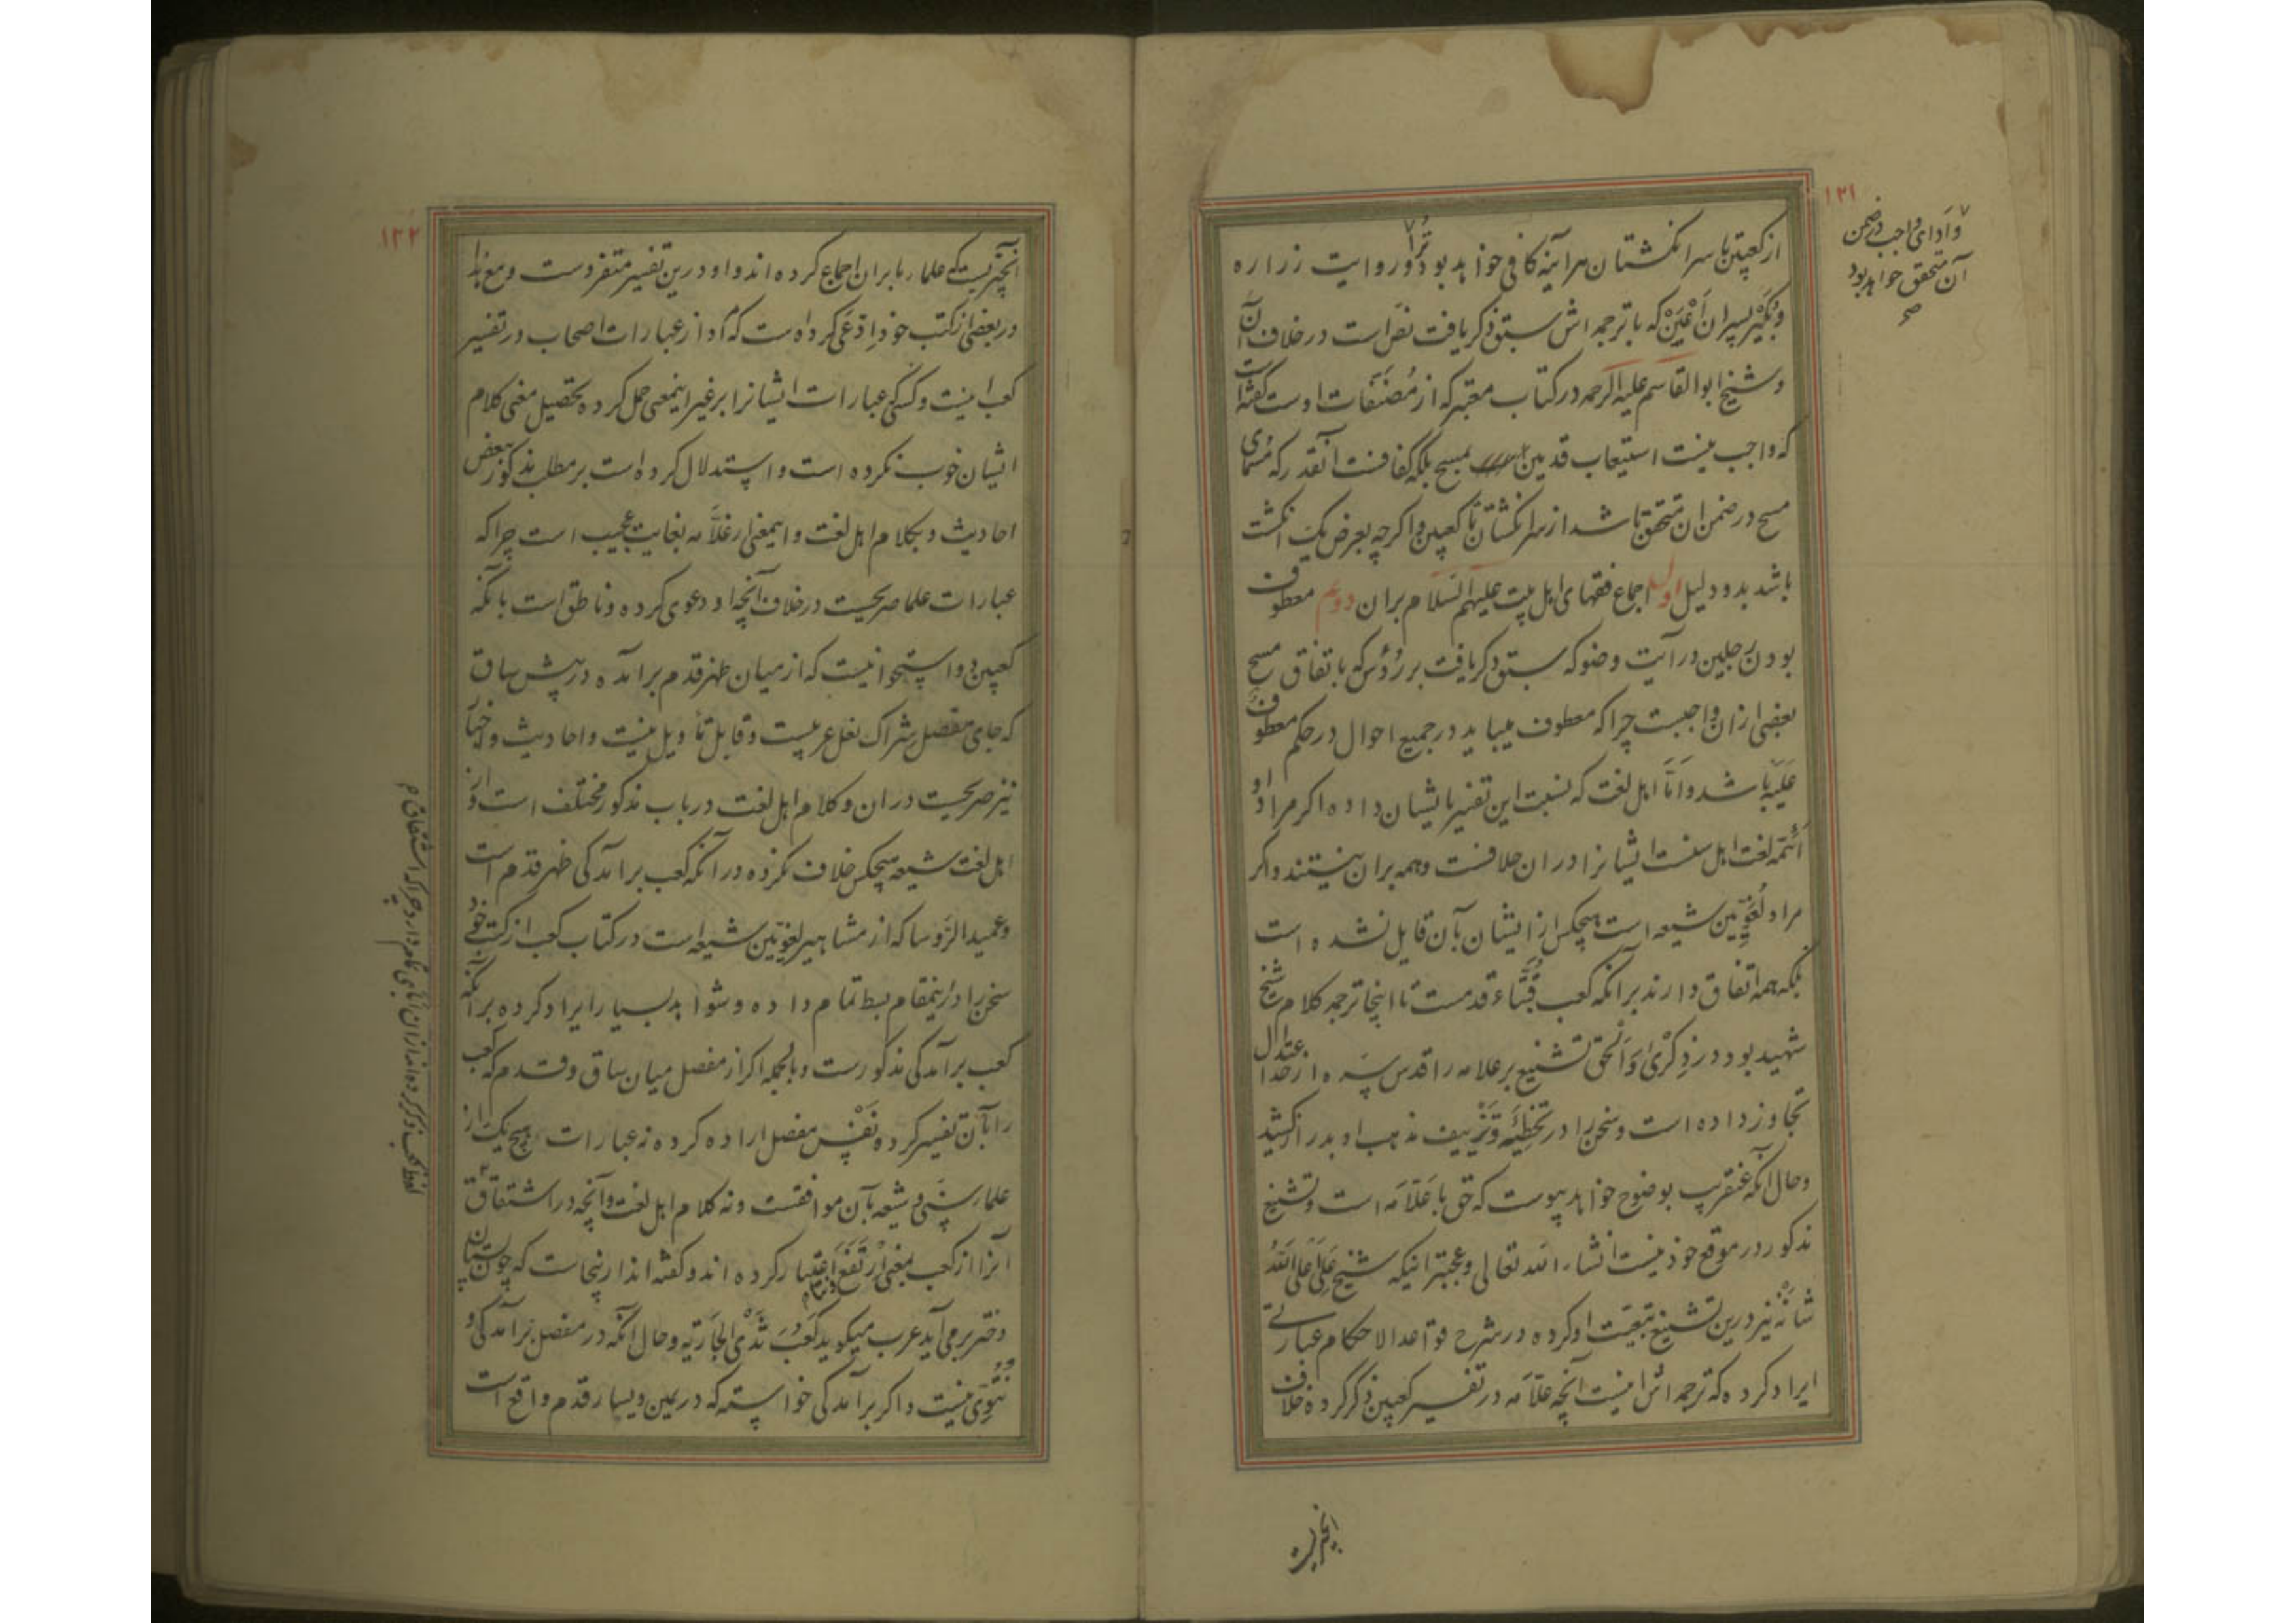 ۱۲۱
از کعبین تا سر انگشتان هر آینه کافی خواهد بود ترا و در روایت زراره
و بُکَیْر پسران اَعْیَنْ که با ترجمه اش سبق ذکر یافت نص است در خلاف آن
و شیخ ابوالقاسم علیه الرحمه در کتاب معتبر که از مُصَنَّفات اوست گفته است
که واجب نیست استیعاب قدمین بمسح بلکه کافست آنقدر که مُسَمّای
مسح در ضمن ان متحقق باشد از سر انگشتان تا کعبین و اگرچه بعرض یک انگشت
باشد بدو دلیل اول اجماع فقهای اهل بیت علیهم السلام بران دویم معطوف
بودن رجلین در آیت وضو که سبق ذکر یافت بر رُؤس که باتفاق مسح
بعضی ازان واجبست چرا که معطوف میباید در جمیع احوال در حکم معطوف
عَلَیه باشد و اَمّا اهل لغت که نسبت این تفسیر بایشان داده اگر مراد او
اَئمّه لغت اهل سنت ایشانرا دران خلافست و همه بران نیستند و اگر
مراد لُغَوِیّین شیعه است هیچکس از ایشان بآن قایل نشده است
بلکه همه اتفاق دارند برانکه کعب قُبّهٔ قدمست تا اینجا ترجمه کلام شیخ
شهید بود در ذِکْریٰ وَ اَلْحَق تشنیع بر علامه را قدس سره از حد اعتدال
تجاوز داده است و سخن را در تَخْطِئَه و تَزْییف مذهب او بدرازا کشید
و حال آنکه عنقریب بوضوح خواهد پیوست که حق با عَلّامَه است و تشنیع
مذکور در موقع خود نیست انشاء الله تعالی و عجبتر اینکه شیخ عَلِی عَلَی اللهُ
شانَهُ نیز درین تشنیع تبعیّت او کرده در شرح قواعد الاحکام عبارتی
ایراد کرده که ترجمه اش اینست آنچه علّامه در تفسیر کعبین ذکر کرده خلاف
وَ اَدای واجب در ضمن
آن متحقق خواهد بود
صح
۱۲۲
آنچیزیست که علما رما بران اجماع کرده اند و او درین تفسیر متفردست و مع هذا
در بعضی از کتب خود اِدّعَی کرده است که مراد از عبارات اصحاب در تفسیر
کعب اینست و کسی که عبارات ایشانرا بر غیر اینمعنی حمل کرده تحصیل معنی کلام
ایشان خوب نکرده است و استدلال کرده است بر مطلب مذکور ببعض
احادیث و بکلام اهل لغت و اینمعنی از عَلّامه بغایت عجیب است چرا که
عبارات علما صریحست در خلاف آنچه او دعوی کرده و ناطق است بانکه
کعبین دو استخوانیست که از میان ظهر قدم برآمده در پیش ساق
که جای مفصل شراک نعل عربیست و قابل تأویل نیست و احادیث و اخبار
نیز صریحست دران و کلام اهل لغت در باب مذکور مختلف است و از
اهل لغت شیعه هیچکس خلاف نکرده در آنکه کعب برآمدگی ظهر قدم است
و عمید الرّوسا که از مشاهیر لغویّین شیعه است در کتاب کعب از کتب خود
سخن را در اینمقام بسط تمام داده و شواهد بسیار ایراد کرده بر آنکه
کعب برآمدگی مذکورست و بالجمله اگر از مفصل میان ساق و قدم که کعب
را بآن تفسیر کرده نَفْس مفصل اراده کرده نه عبارات هیچ یک از
علماء سنی و شیعه بآن موافقست و نه کلام اهل لغت و آنچه در اشتقاق
آنرا از کعب بمعنی اِرْتَفَعَ اعتبار کرده اند و گفته اند ازینجاست که چون پستان
دختر برمی آید عرب میگوید کَعَبَ ثَدْیُ الجارَیه و حال آنکه در مفصل برآمدگی و
نُتُوّی نیست و اگر برآمدگی خواسته که در یمین و یسار قدم واقع است